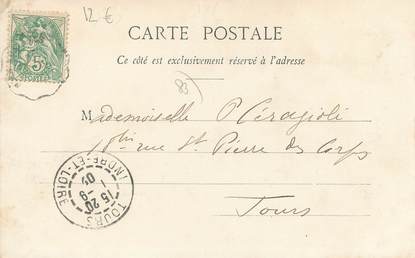 12 €
5c
POSTES
CARTE POSTALE
Ce côté est exclusivement réservé à l'adresse
83
Mademoiselle P Céragioli
rue St Pierre des Corps
Tours
TOURS
INDRE-ET-LOIRE
15 20